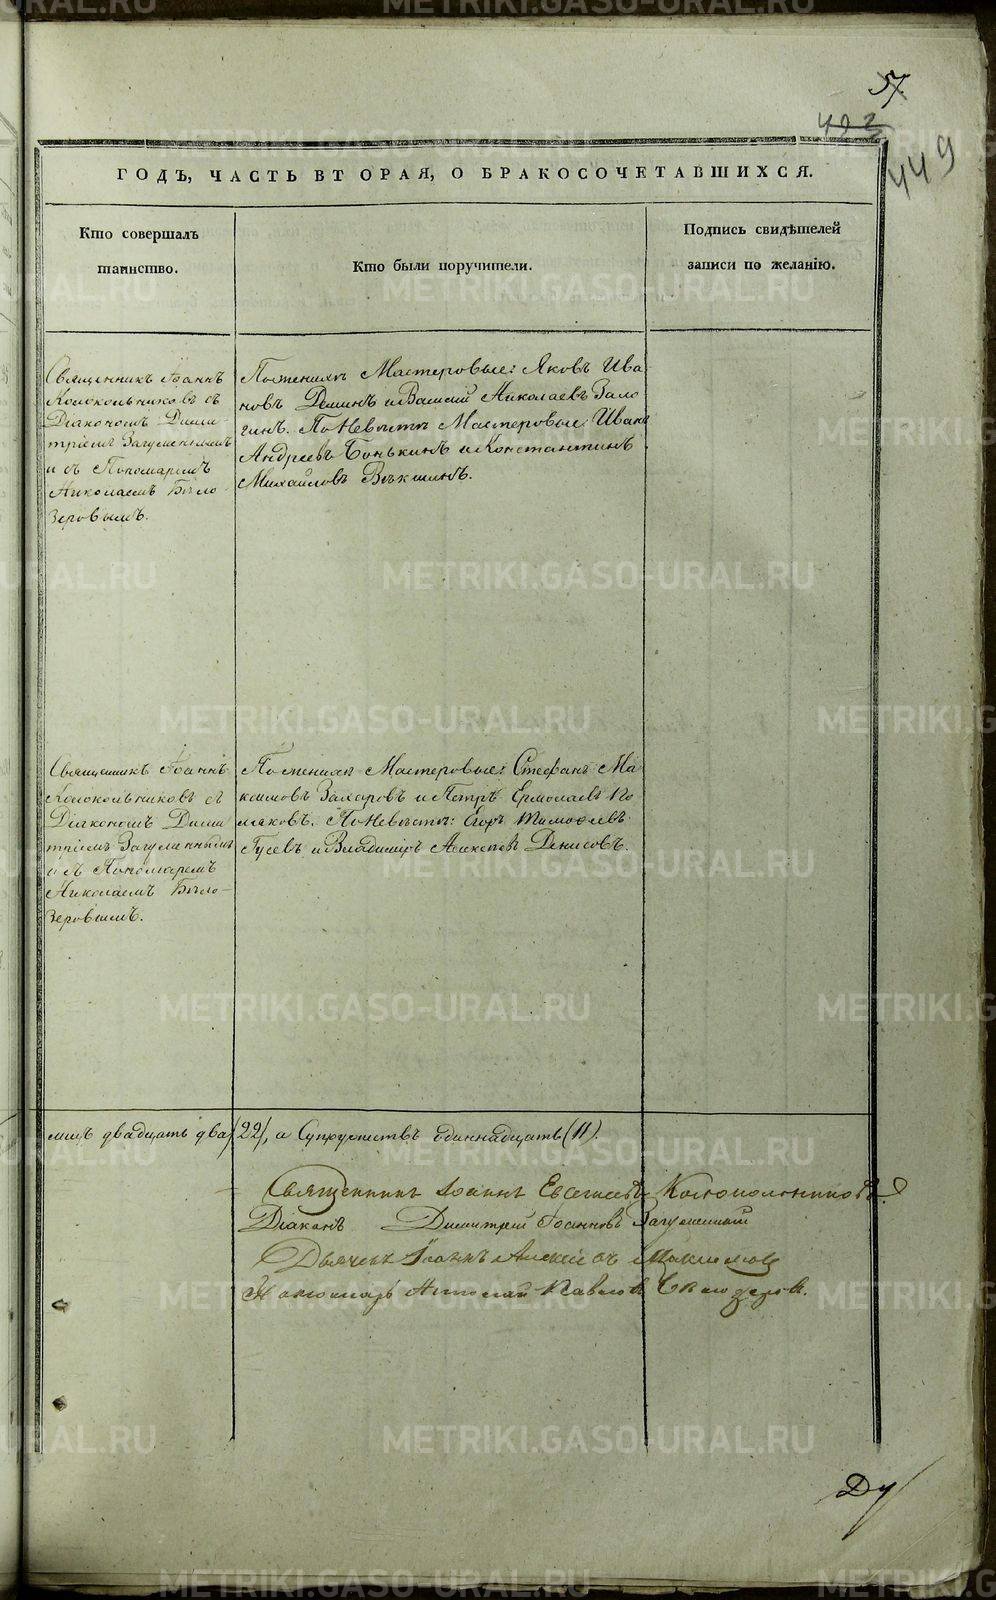 57.
422
449
ГОДЪ, ЧАСТЬ ВТОРАЯ, О БРАКОСОЧЕТАВШИХСЯ.
Кто совершалъ
таинство.
Кто были поручители.
Подпись свидѣтелей
записи по желанію.
Священникъ Іоаннъ
Колокольниковъ съ
Діакономъ Дими-
тріемъ Загуменнымъ
и съ Пономаремъ
Николаемъ Бѣло-
зеровымъ.
По женихѣ Мастеровые: Яковъ Ива
новъ Деминъ и Василій Николаевъ Зало
гинъ. По Невѣстѣ Мастеровые: Иванъ
Андреевъ Бонькинъ и Константинъ
Михайловъ Вѣкшинъ.
Священникъ Іоаннъ
Колокольниковъ съ
Діакономъ Дими
тріемъ Загуменнымъ
и съ Пономаремъ
Николаемъ Бѣло-
зеровымъ.
По женихѣ Мастеровые: Стефанъ Ма
ксимовъ Захаровъ и Петръ Ермолаевъ По
ляковъ. По Невѣстѣ: Егоръ Тимофеевъ
Гусевъ и Владимиръ Алексѣевъ Денисовъ.
лицъ двадцать два (22), а Супружествъ одиннадцать (11).
Священникъ Іоаннъ Евсегнеевъ Колокольниковъ.
Діаконъ Димитрій Іоанновъ Загуменный
Дьячекъ Іоаннъ Алексѣевъ
Пономарь Николай Павловъ Бѣлозеровъ.
METRIKI.GASO-URAL.RU